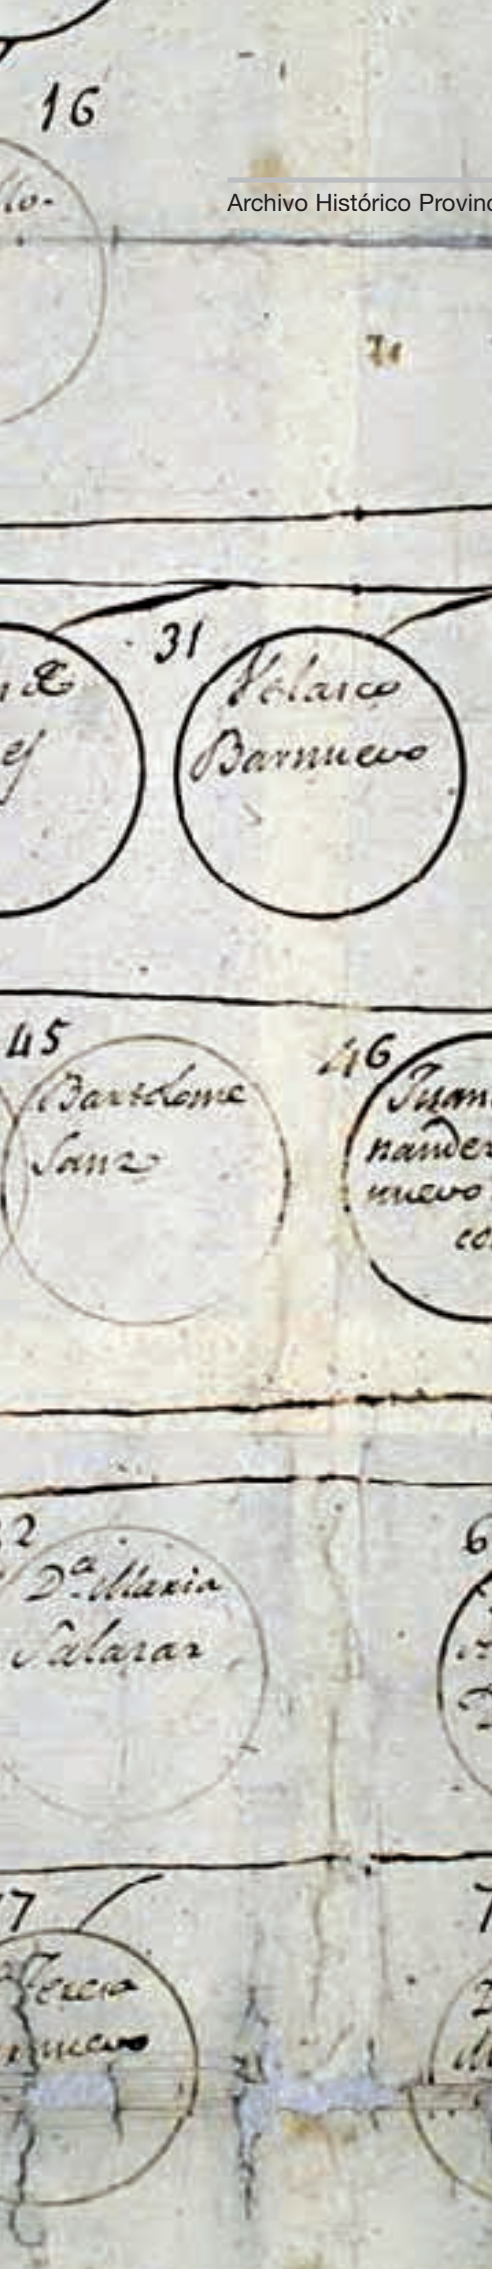 16
Archivo Histórico Provinc
31
Velasco
Barnuevo
45
Bartolome
Sanz
46
Juan
nandez
nuevo
co
2
D.ª Maria
Salazar
6
7
Teresa
nuevo
7